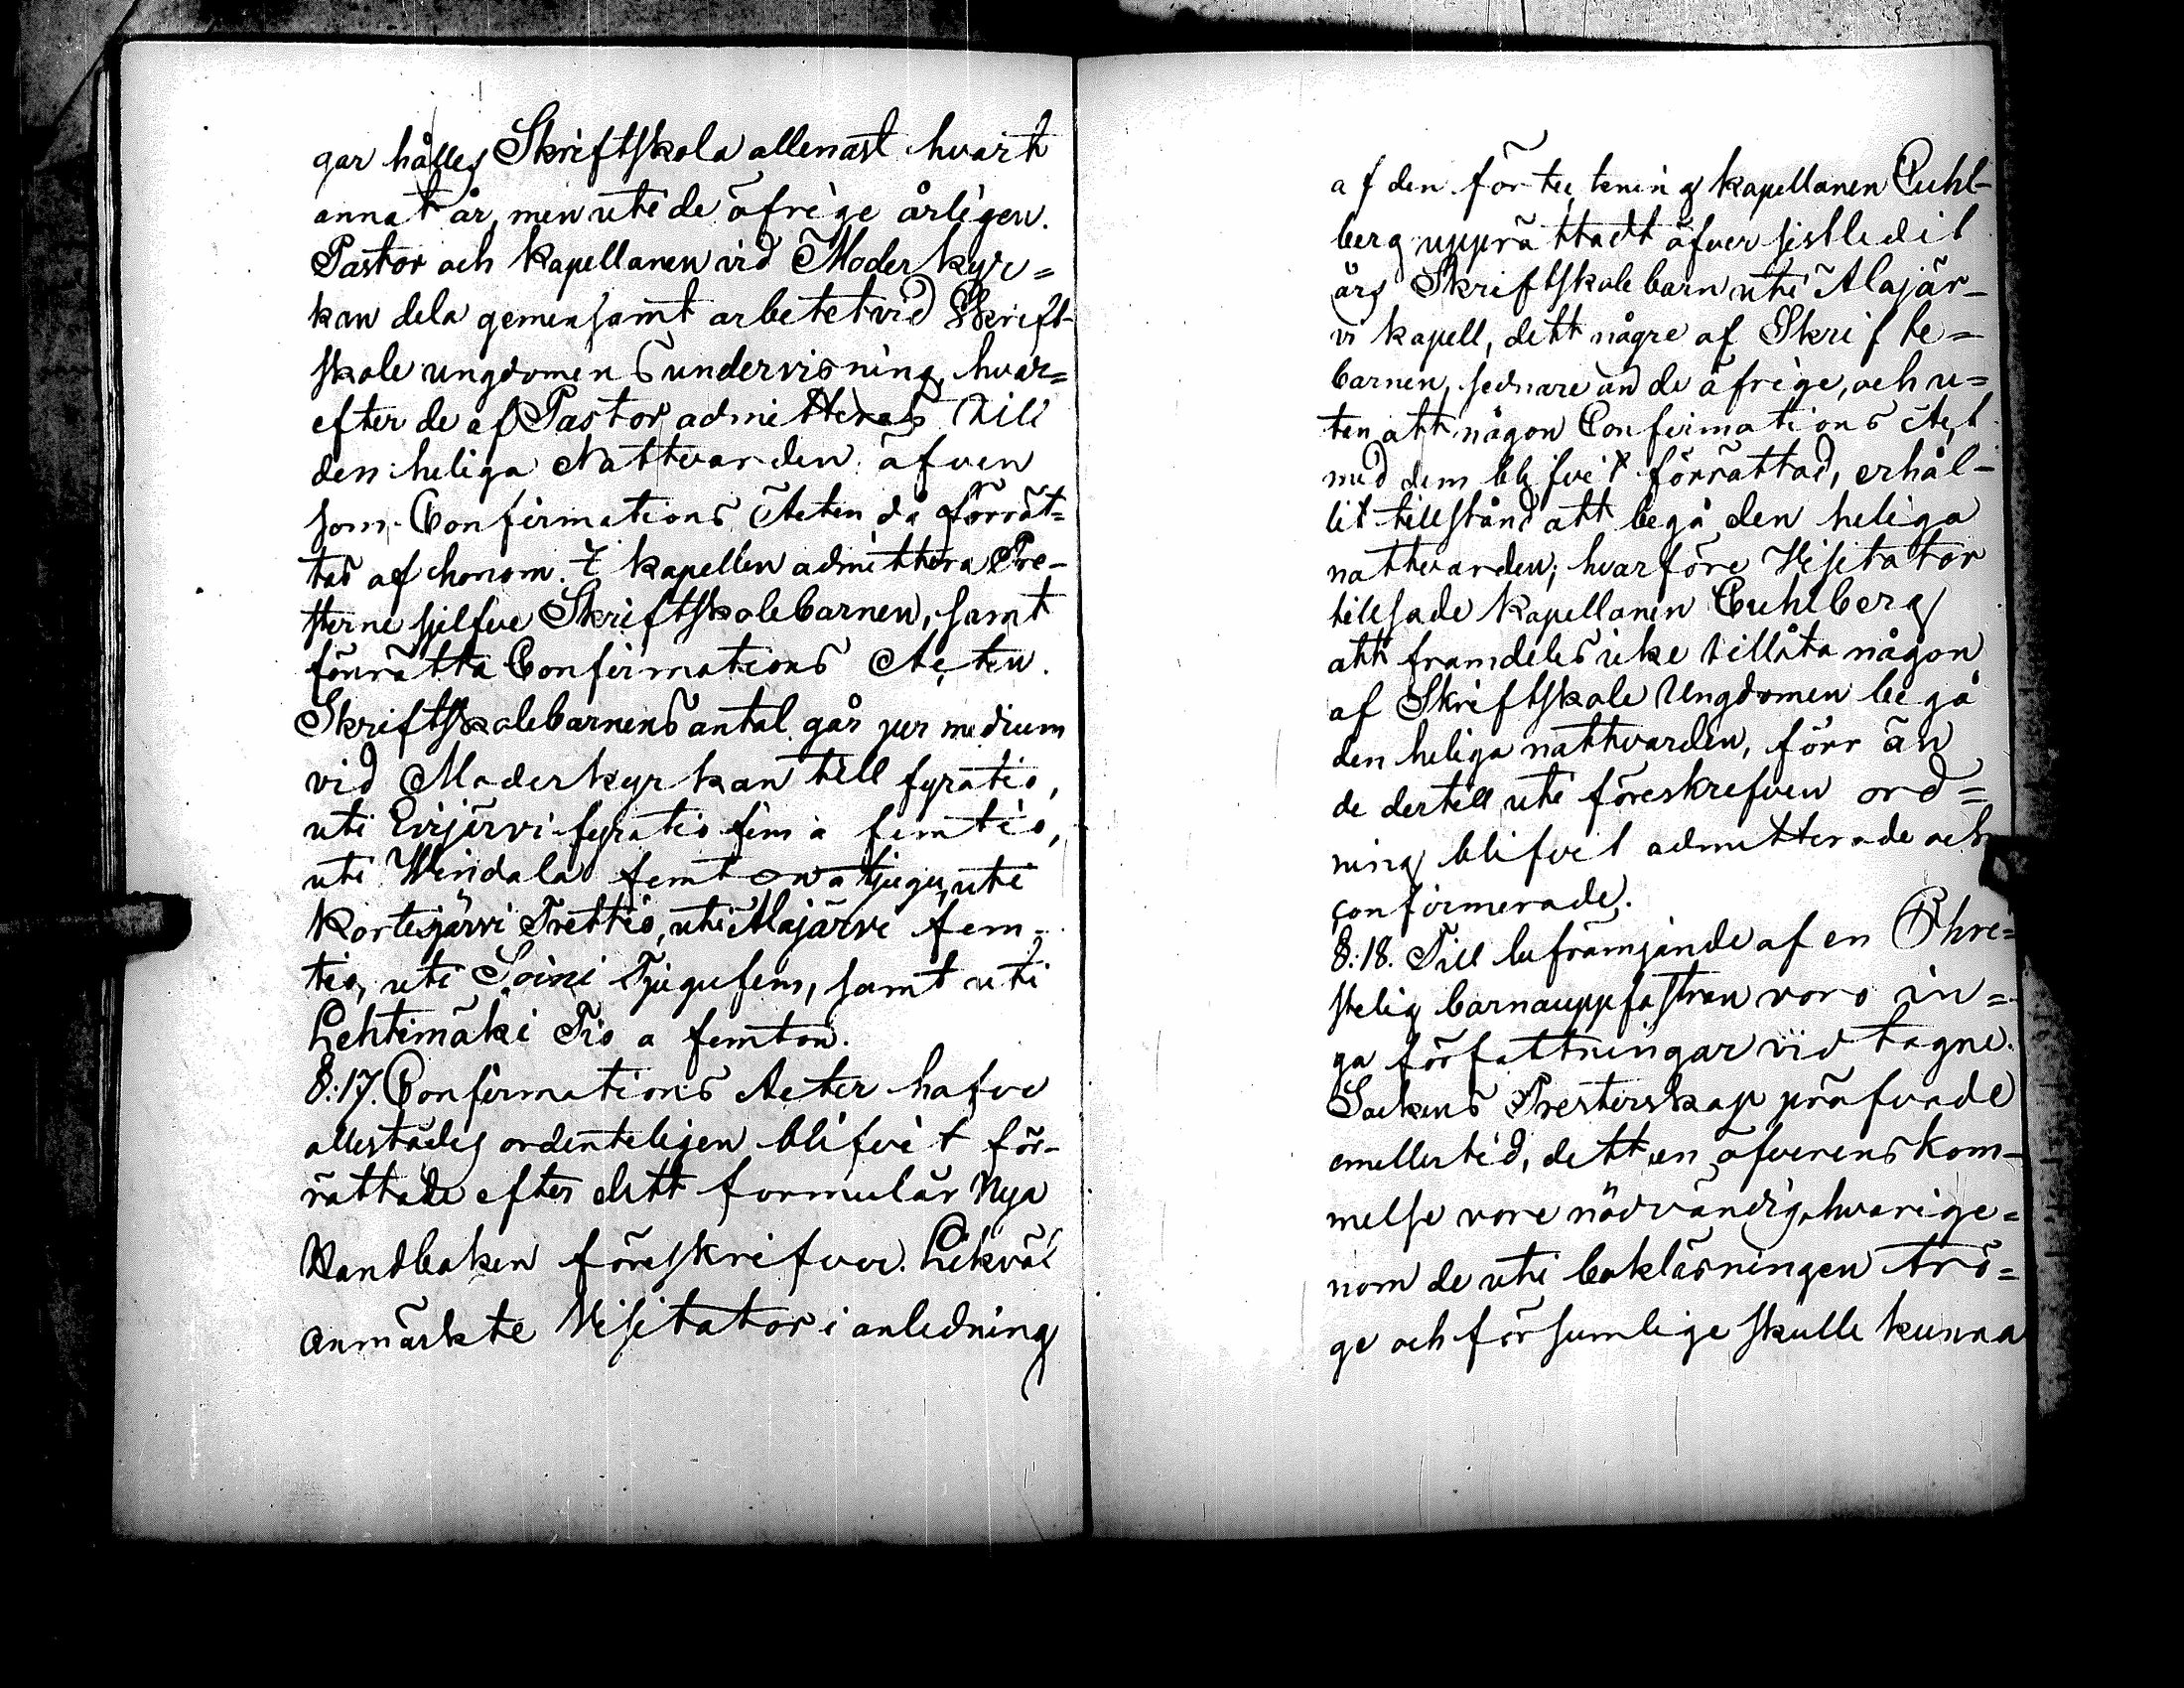 gar hålles Skriftskola allenast hvart
annat år, men uti de öfrige årligen.
Pastor och Kapellanen vid Moderkyr=
kan dela gemensamt arbetet vid Skrift-
skole ungdomens undervisning, hvar=
efter de af Pastor admitteras till
den heliga Nattvarden, äfven
som Confirmations Acten då förrät=
tas af honom. I kapellen admittera Pre-
sterne sjelfve Skriftskolebarnen, samt
förrätta Confirmations Acten.
Skriftskolebarnens antal går per medium
vid Moderkyrkan till fyratio,
uti Evijärvi fyratio fem à femtio,
uti Windala femton à tjugu, uti
Kortesjärvi Trettio, uti Alajärvi fem=
tio, uti Soini Tjugufem, samt uti
Lehtimäki Tio a femton.
§:17. Confirmations Acter hafve
allestädes ordenteligen blifvit för-
rättade efter dett formulär Nya
Handboken föreskrifver. Likväl
anmärkte Visitator i anledning
af den förteckning kapellanen Cuhl-
berg upprättadt öfver sistledit
års Skriftskolebarn uti Alajär-
vi kapell, dett någre af Skrifte=
barnen, sednare än de öfrige, och u=
tan att någon Confirmations Act
med dem blifvit förrättad, erhål-
lit tillstånd att begå den heliga
nattvarden; hvarföre Visitator
tillsade Kapellanen Cuhlberg
att framdeles icke tillåta någon
af Skriftskole Ungdomen begå
den heliga nattvarden, förr än
de dertill uti föreskrefven ord=
ning blifvet admitterade och
confirmerade.
§:18. Till befrämjande af en Chri=
stelig barnauppfostran voro in=
ga författningar vidtagne.
Sockens Presterskap pröfvade
emellertid, dett en öfverenskom-
melse vore nödvändig, hvarige=
nom de uti bokläsningen trö=
ge och försumlige skulle kunna